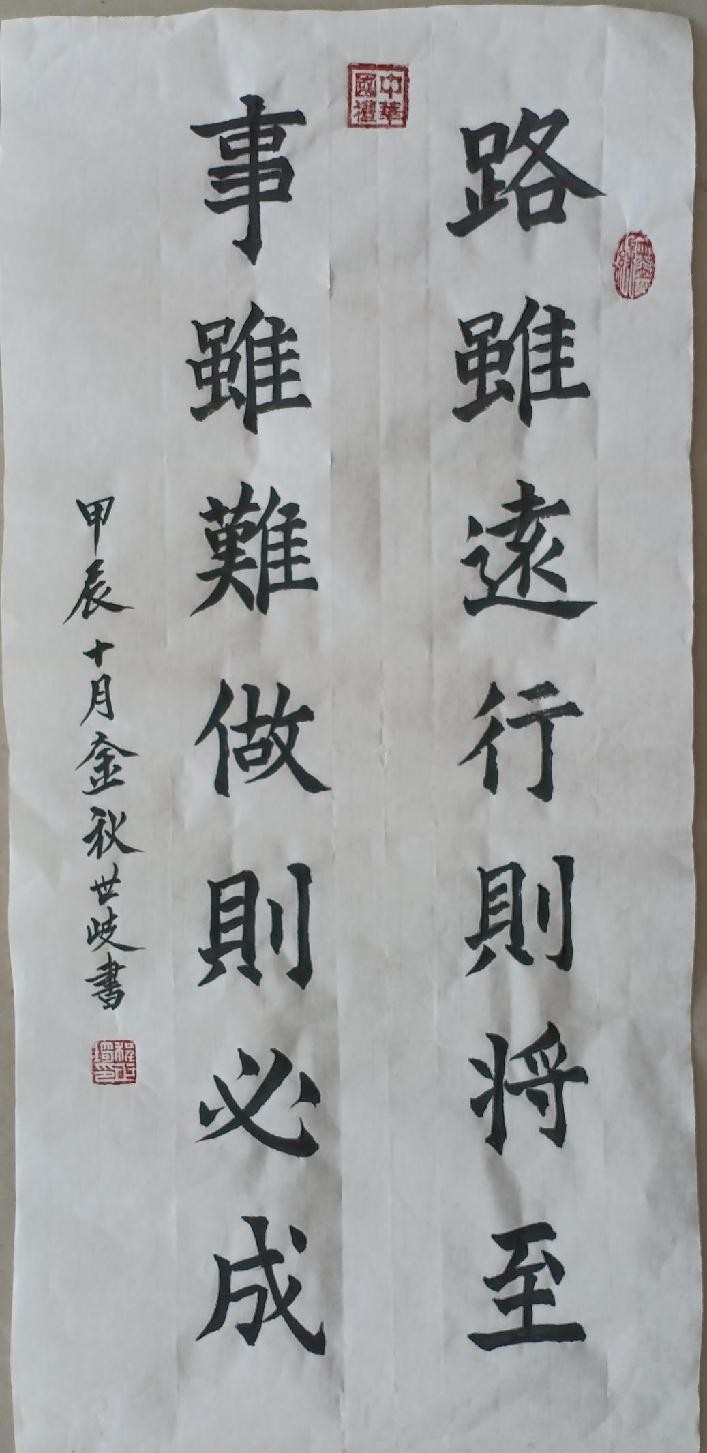 路雖遠行則将至
事雖難做則必成
甲辰十月金秋世岐書
中華國禮